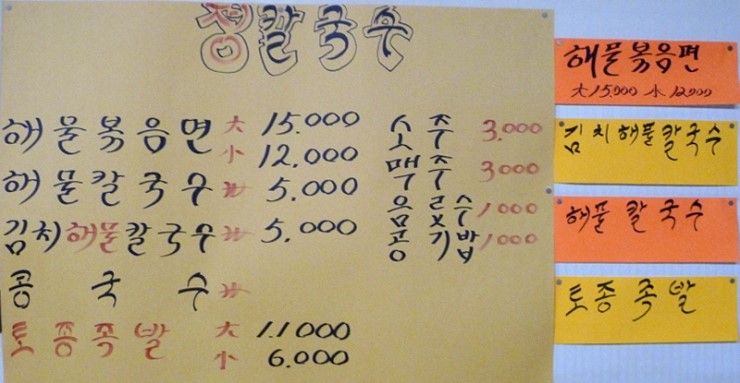 정칼국수
해물볶음면 大 15.000
小 12.000
해물칼국수 5.000
김치해물칼국수 5.000
콩국수
토종족발 大 11000
小 6.000
소주 3.000
맥주 3000
음료수 1000
공기밥 1000
해물볶음면
大 15.000 小 12.000
김치해물칼국수
해물칼국수
토종족발